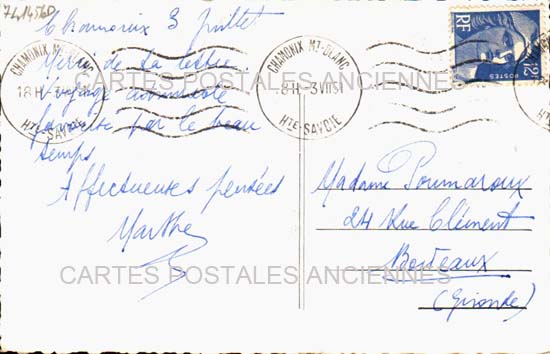 7414560
Chamonix 3 Juillet
Merci de ta lettre
Voyage
par le beau
temps
Affectueuses pensées
Marthe
CHAMONIX MT-BLANC
18H -3
HTE-SAVOIE
CHAMONIX MT-BLANC
18H -3 VII 51
HTE-SAVOIE
RF
12F
POSTES
Madame Poumaroux
24 Rue Clément
Bordeaux
(Gironde)
CARTES POSTALES ANCIENNES
CARTES POSTALES ANCIENNES